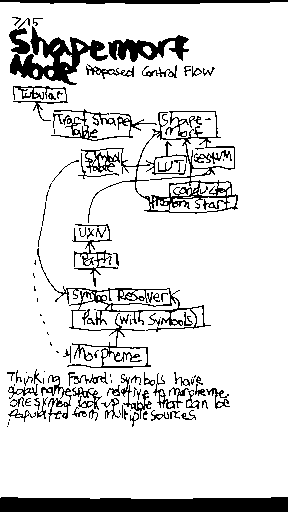 7/15
Shapemorf
Node Proposed Control Flow
Tubular
Tract Shape
Table
Shape-
morf
Symbol
Table
LUT
GesVM
Conductor
Phoneme Start
UXN
Path
Symbol Resolver
Path (with Symbols)
Morpheme
Thinking Forward: symbols have
global namespace relative to morpheme.
one symbol look-up table that can be
populated from multiple sources